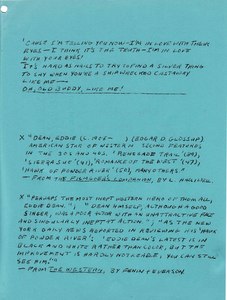 'CAUSE I'M TELLING YOU NOW—I'M IN LOVE WITH THEM
EYES—I THINK IT'S THE TRUTH—I'M IN LOVE
WITH YOUR EYES!
IT'S HARD AS NAILS TO TRY TO FIND A SILVER THING
TO SAY WHEN YOU'RE A SHIPWRECKED CASTAWAY
LIKE ME—
OR, OLD BUDDY, LIKE ME!
X "DEAN, EDDIE (C. 1908— ) (EDGAR D. GLOSSUP)
AMERICAN STAR OF WESTERN SECOND FEATURES
IN THE 30S AND 40S. 'RENEGADE TRAIL' (39),
'SIERRA SUE' (41), 'ROMANCE OF THE WEST' (47)
'HAWK OF POWDER RIVER' (50), MANY OTHERS."
—FROM THE FILMGOERS COMPANION, BY L. HALLIWELL.
X "PERHAPS THE MOST INEPT WESTERN HERO OF THEM ALL,
EDDIE DEAN."; "DEAN HIMSELF, ALTHOUGH A GOOD
SINGER, WAS A POOR ACTOR WITH AN UNATTRACTIVE FACE
AND SINGULARLY INEPT IN ACTION."; "AS THE NEW
YORK DAILY NEWS REPORTED IN REVIEWING HIS 'HAWK
OF POWDER RIVER': 'EDDIE DEAN'S LATEST IS IN
BLACK AND WHITE RATHER THAN COLOR, BUT THE
IMPROVEMENT IS HARDLY NOTICEABLE; YOU CAN STILL
SEE HIM.'"
—FROM THE WESTERN, BY FENIN + EVERSON.